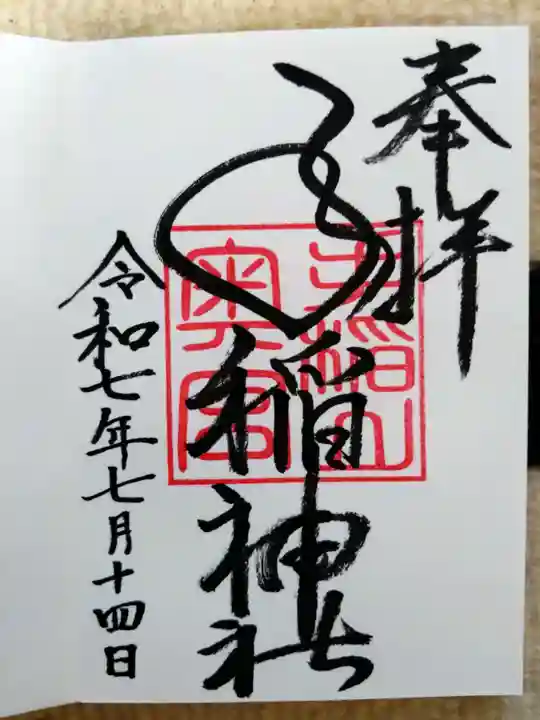 奉拝
手稲神社
令和七年七月十四日
手稲山
奥宮